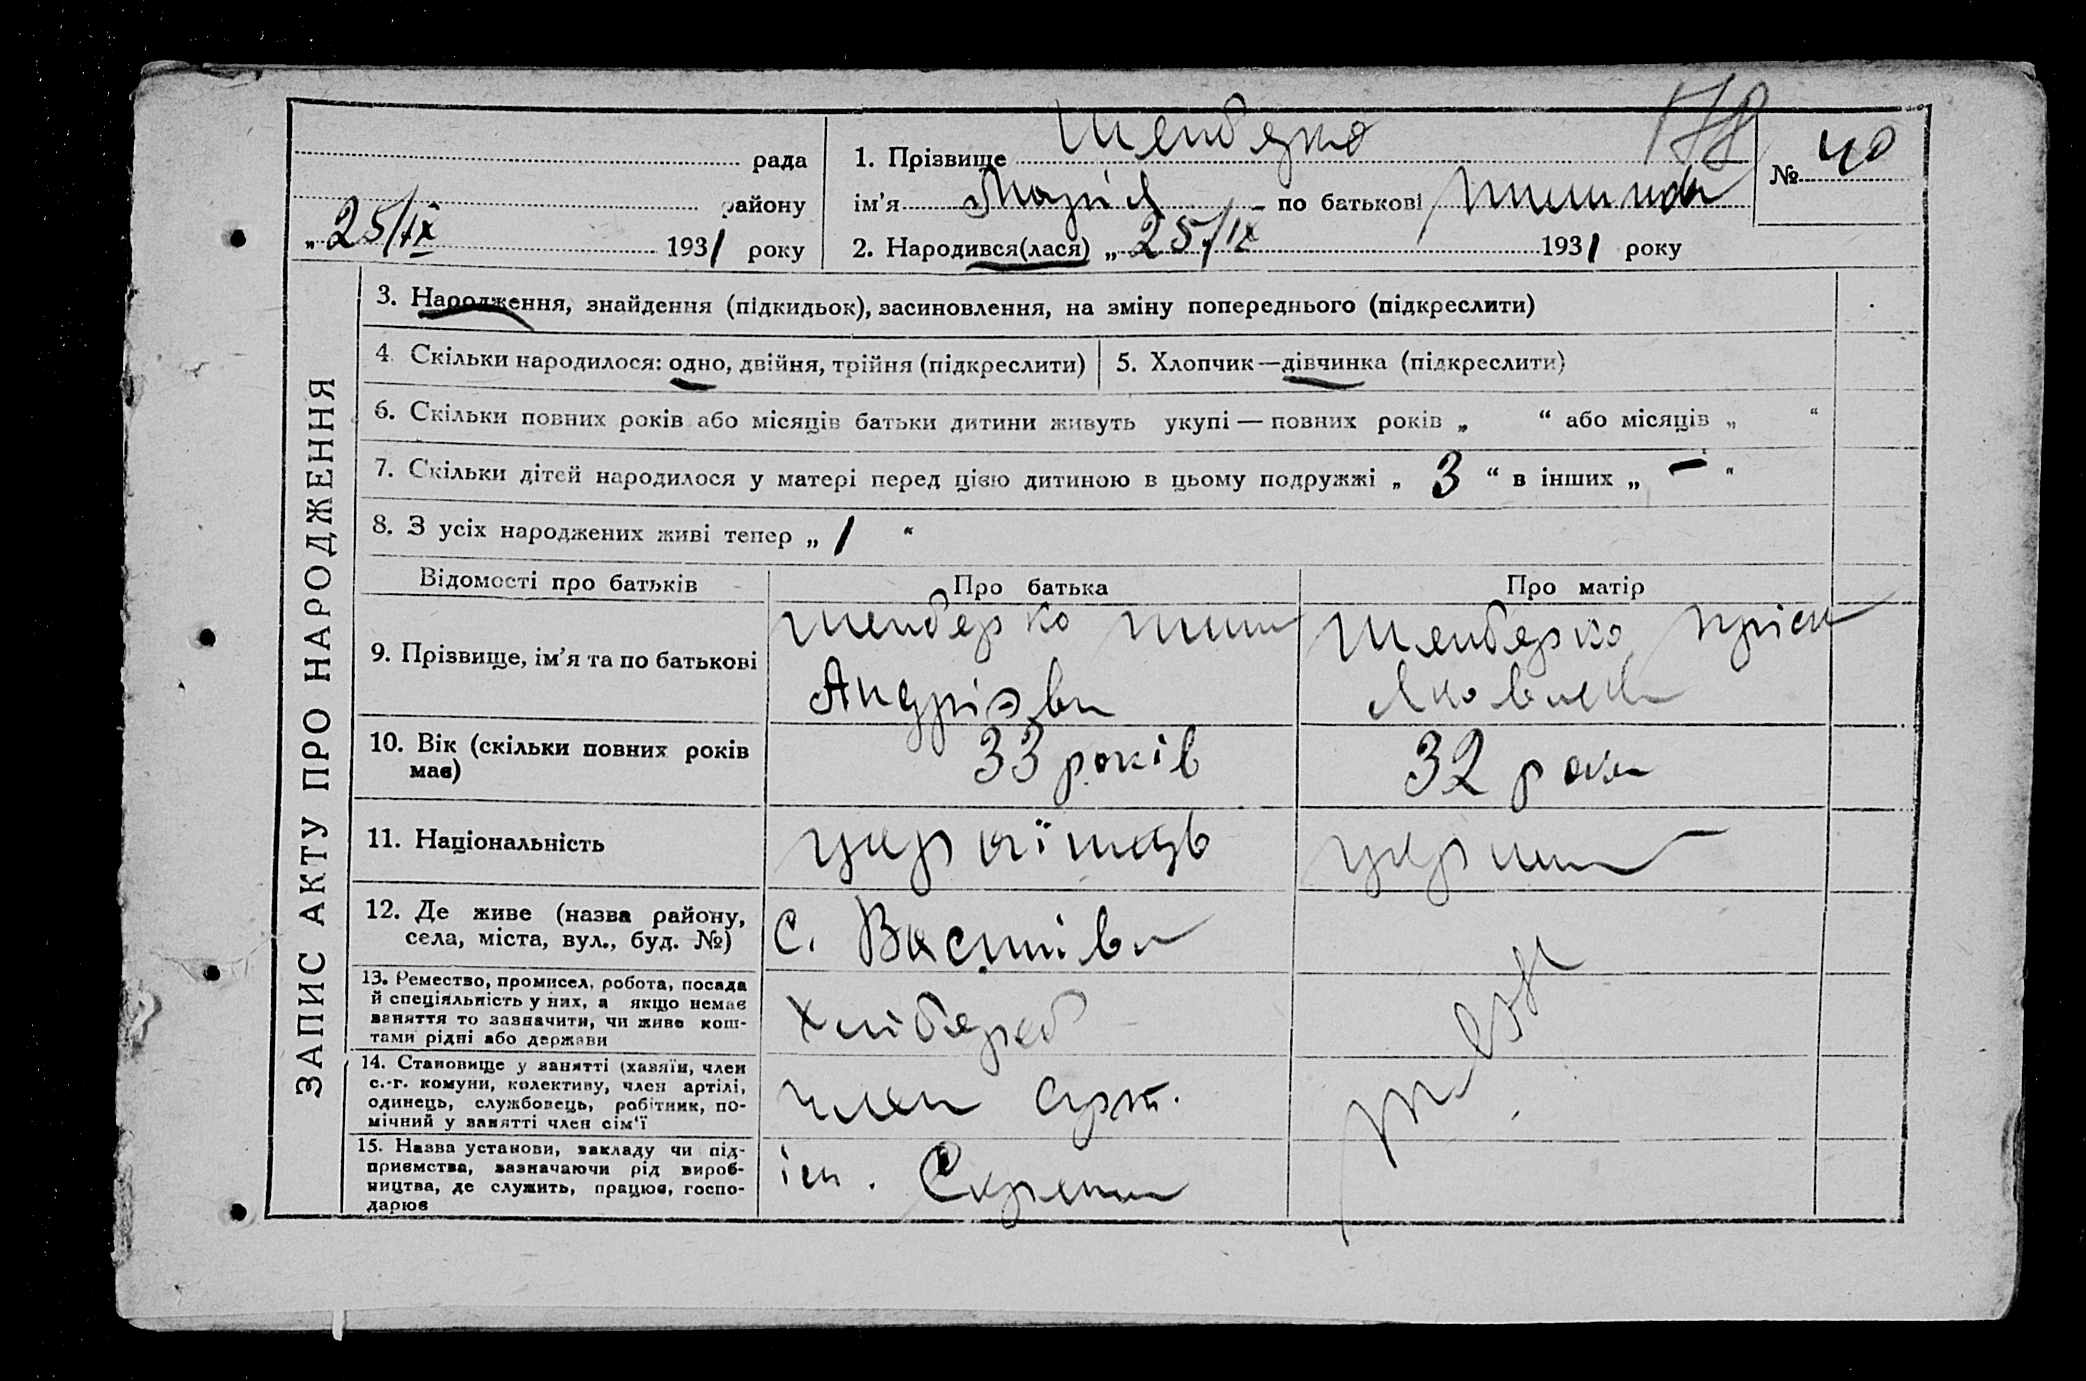 178
рада
1. Прізвище Шендерко
№ 40
району
ім’я Марія по батькові
„ 25/IX 1931 року
2. Народився(лася) „ 25/IX 1931 року
ЗАПИС АКТУ ПРО НАРОДЖЕННЯ
3. Народження, знайдення (підкидьок), засиновлення, на зміну попереднього (підкреслити)
4. Скільки народилося: одно, двійня, трійня (підкреслити)
5. Хлопчик—дівчинка (підкреслити)
6. Скільки повних років або місяців батьки дитини живуть укупі — повних років „ “ або місяців „ “
7. Скільки дітей народилося у матері перед цією дитиною в цьому подружжі „ 3 “ в інших „ — “
8. З усіх народжених живі тепер „ 1 “
Відомості про батьків
Про батька
Про матір
9. Прізвище, ім’я та по батькові
Шендерко
Андрієв
Шендерко Пріс
Яковлев
10. Вік (скільки повних років
має)
33 років
32 роки
11. Національність
українець
укр
12. Де живе (назва району,
села, міста, вул., буд. №)
с. Василівка
13. Ремество, промисел, робота, посада
й спеціяльність у них, а якщо немає
заняття то зазначити, чи живе кош-
тами рідні або держави
Хлібороб
14. Становище у занятті (хазяїн, член
с.-г. комуни, колективу, член артілі,
одинець, службовець, робітник, по-
мічний у занятті член сім’ї
член арт.
15. Назва установи, закладу чи під-
приємства, зазначаючи рід вироб-
ництва, де служить, працює, госпо-
дарює
ім.